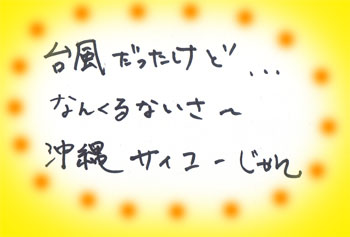 台風だったけど...
なんくるないさ〜
沖縄サイコーじゃん